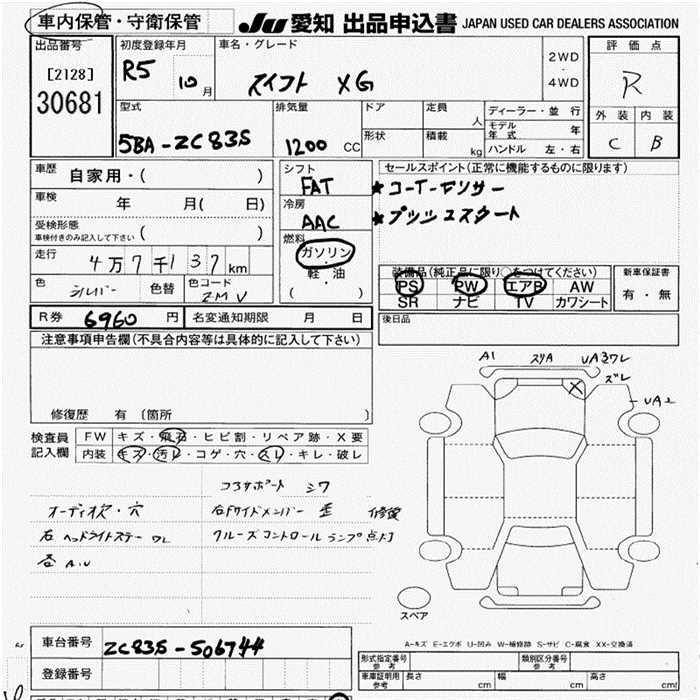 車内保管・守衛保管 JU 愛知 出品申込書 JAPAN USED CAR DEALERS ASSOCIATION
出品番号 [2128] 30681
初度登録年月 R5 10 月
車名・グレード スイフト XG
2WD ・ 4WD
評価点 R
外装 内装
C B
型式 5BA-ZC83S
排気量 1200 CC
ドア 定員 人
形状 積載 kg
ディーラー・並行
モデル年式 年
ハンドル 左・右
車歴 自家用・( )
車検 年 月( 日)
受検形態
車検付きのみ記入して下さい ( )
走行 4万7千137km
色 シルバー 色替 色コード ZMV
シフト FAT
冷房 AAC
燃料 ガソリン・軽・油
( )
セールスポイント(正常に機能するものに限ります)
★コーナーセンサー
★プッシュスタート
装備品(純正品に限り○をつけてください)
PS PW エアB AW
SR ナビ TV カワシート
新車保証書
有・無
R券 6960 円 名変通知期限 月 日
後日品
注意事項申告欄(不具合内容等は具体的に記入して下さい)
修復歴 有 〔箇所 〕
検査員記入欄
FW キズ・飛石・ヒビ割・リペア跡・X要
内装 キズ・汚レ・コゲ・穴・スレ・キレ・破レ
A1 スリA UA3ワレ
ズレ
UA2
X
コアサポート シワ
オーディオ欠・穴 右Fサイドメンバー 歪 修復
右 ヘッドライトステー ワレ クルーズコントロールランプ点灯
スペア
A-キズ E-エクボ U-凹み W-補修跡 S-サビ C-腐食 XX-交換済
車台番号 ZC83S-506744
登録番号
形式指定番号 参考 類別区分番号 参考
車庫証明用 参考 長さ cm 幅 cm 高さ cm